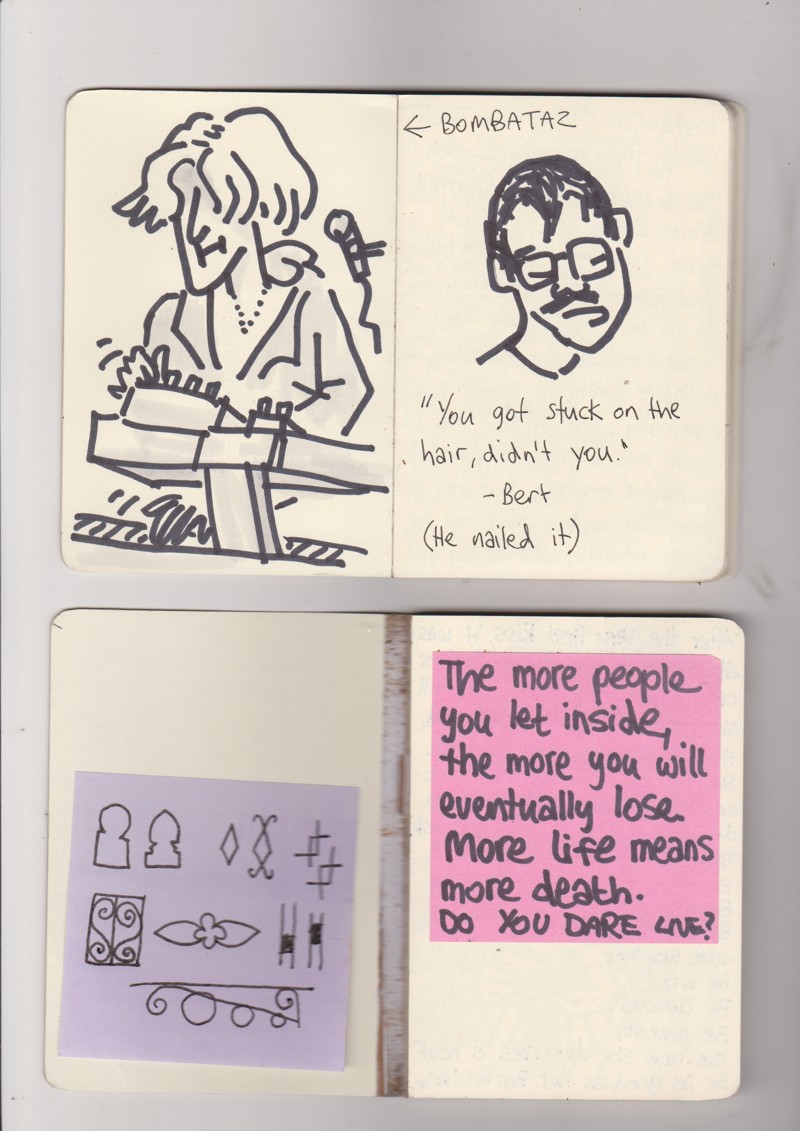 ← BOMBATAZ
"You got stuck on the
hair, didn't you."
- Bert
(He nailed it)
The more people
you let inside,
the more you will
eventually lose.
More life means
more death.
DO YOU DARE LIVE?